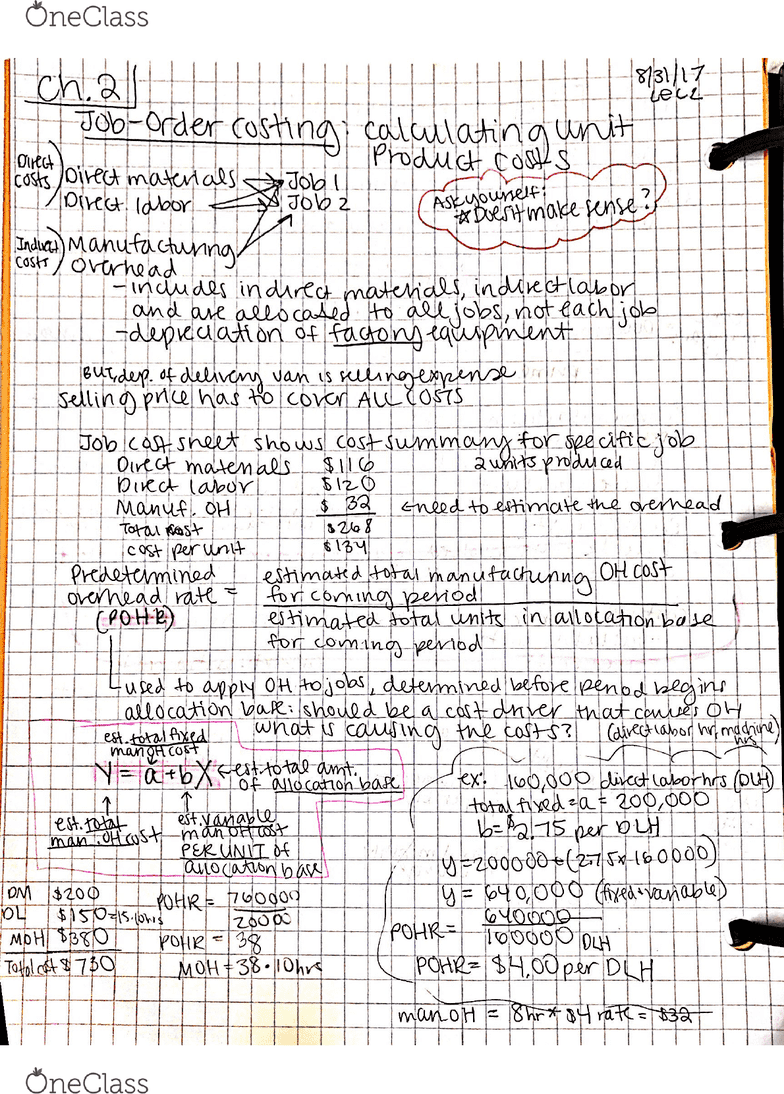 OneClass
Ch. 2
8/31/17
Lec 2
Job-Order costing: calculating unit
Product costs
Direct costs) Direct materials Job 1
Direct labor Job 2
Ask yourself:
*Does it make sense?
Indirect costs) Manufacturing
overhead
-includes indirect materials, indirect labor
and are allocated to all jobs, not each job
-depreciation of factory equipment
BUT, dep. of delivery van is selling expense
Selling price has to cover ALL COSTS
Job cost sheet shows cost summary for specific job
Direct materials $116 2 units produced
Direct labor $120
Manuf. OH $ 32 ←need to estimate the overhead
Total cost $268
cost per unit $134
Predetermined overhead rate = estimated total manufacturing OH cost
for coming period
(POHR) estimated total units in allocation base
for coming period
used to apply OH to jobs, determined before period begins
allocation base: should be a cost driver that causes OH
what is causing the costs? (direct labor hr, machine hrs)
est. total fixed
man OH cost
Y = a + bX ←est. total amt.
of allocation base
est. total
man. OH cost
est. variable
man OH cost
PER UNIT of
allocation base
ex: 160,000 direct labor hrs (DLH)
total fixed = a = 200,000
b= $2.75 per DLH
y=200000+(2.75x160000)
y = 640,000 (fixed+variable)
POHR= 640000
160000 DLH
POHR= $4.00 per DLH
man OH = 8hr * $4 rate = $32
DM $200
DL $150=15.10hrs
MOH $380
Total cost $730
POHR = 760000
20000
POHR = 38
MOH = 38·10hrs
OneClass